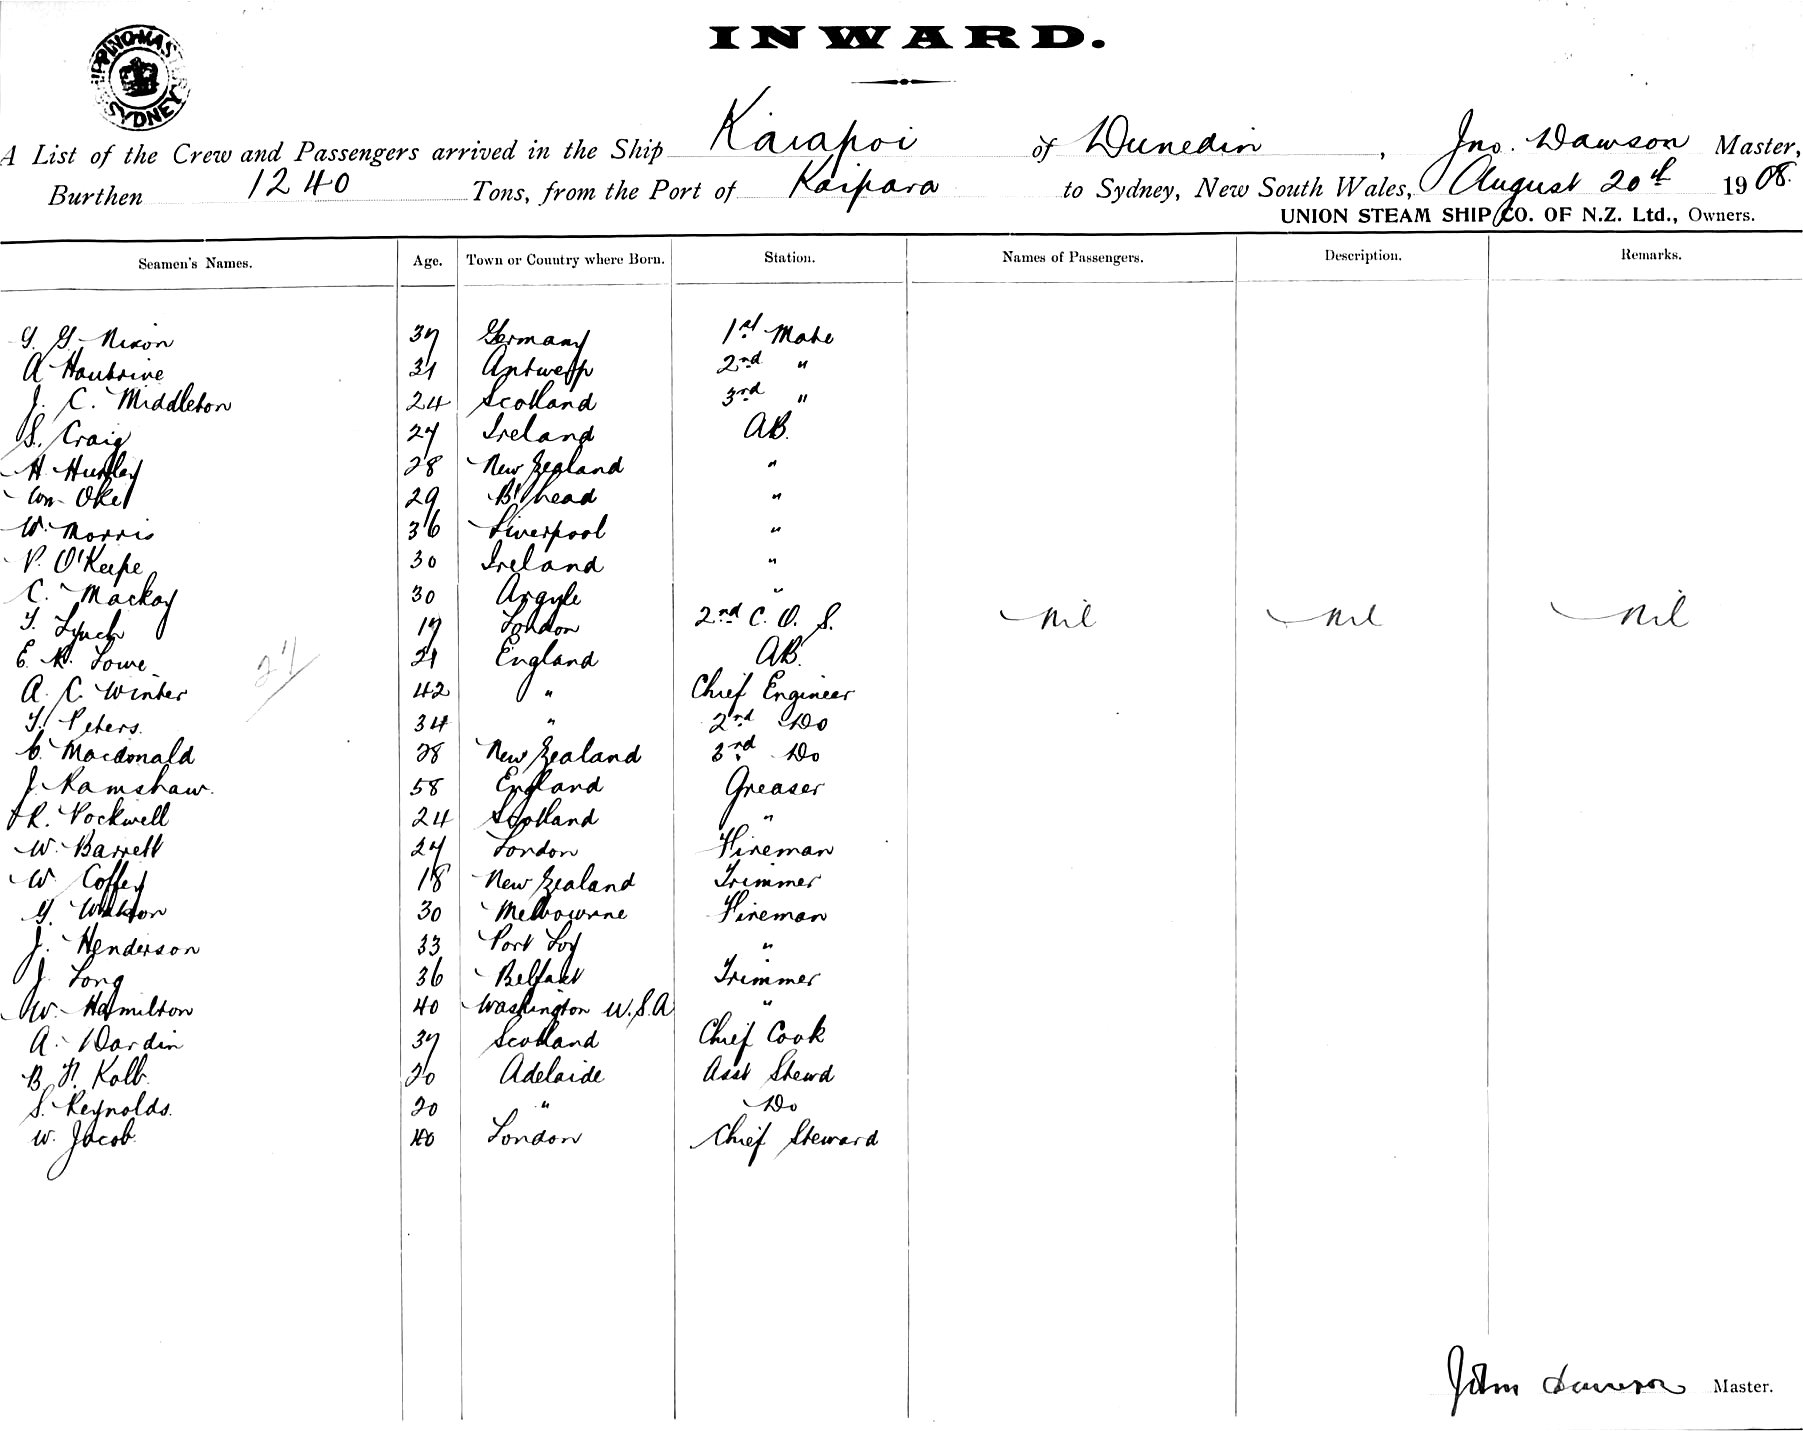 INWARD.
SHIPPING MASTER SYDNEY
A List of the Crew and Passengers arrived in the Ship Kaiapoi of Dunedin, Jno. Dawson Master,
Burthen 1240 Tons, from the Port of Kaipara to Sydney, New South Wales, August 20th 1908.
UNION STEAM SHIP CO. OF N.Z. Ltd., Owners.
Seamen's Names. Age. Town or Country where Born. Station. Names of Passengers. Description. Remarks.
G. G. Nixon 37 Germany 1st Mate
A Haubrine 31 Antwerp 2nd "
J. C. Middleton 24 Scotland 3rd "
S. Craig 27 Ireland AB.
H. Huxley 28 New Zealand "
Wm Okel 29 B'head "
W. Morris 36 Liverpool "
P. O'Keefe 30 Ireland "
C. Mackay 30 Argyle "
T. Lynch 19 London 2nd C. O. S. Nil Nil Nil
E. Lowe 21 England AB.
27
A. C. Winter 42 " Chief Engineer
T. Peters. 34 " 2nd Do
C. Macdonald 28 New Zealand 3rd Do
J. Ramshaw. 58 England Greaser
R. Pockwell 24 Scotland "
W. Barrett 27 London Fireman
W Coffey 18 New Zealand Trimmer
G. Walton 30 Melbourne Fireman
J. Henderson 33 Port Loy "
J. Long 36 Belfast Trimmer
W. Hamilton 40 Washington U.S.A "
A. Dardin 37 Scotland Chief Cook
B. P. Kolb. 20 Adelaide Asst Stewd
S. Reynolds. 20 " Do
W. Jacob. 40 London Chief Steward
John Dawson Master.